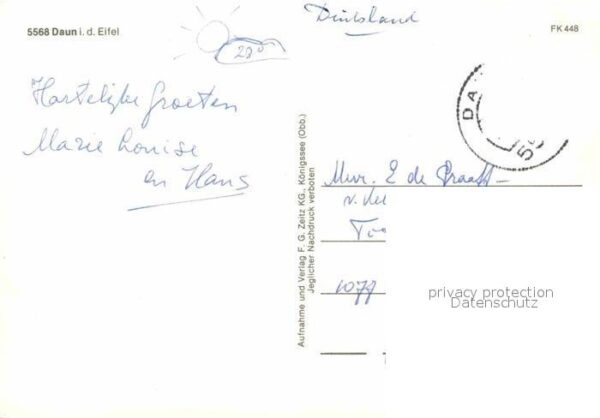 5568 Daun i. d. Eifel
28°
Duitsland
FK 448
Hartelijke Groeten
Marie Louise
en Hans
DA
55
Aufnahme und Verlag F. G. Zeitz KG., Königssee (Obb.)
Jeglicher Nachdruck verboten
Mevr. E de Graaff-
v. 
1077
privacy protection
Datenschutz